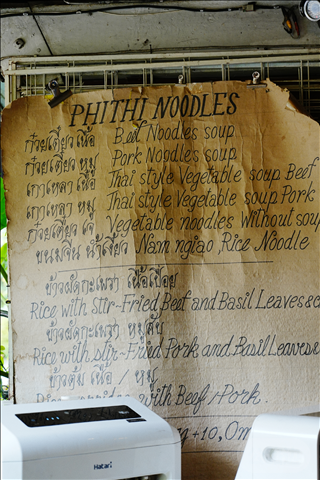 PHITHI NOODLES
ก๋วยเตี๋ยว เนื้อ Beef Noodles soup
ก๋วยเตี๋ยว หมู Pork Noodles soup
เกาเหลา เนื้อ Thai style Vegetable soup Beef
เกาเหลา หมู Thai style Vegetable soup Pork
ก๋วยเตี๋ยว เจ Vegetable noodles Without soup
ขนมจีน น้ำเงี้ยว Nam ngiao, Rice Noodle
ข้าวผัดกะเพรา เนื้อเปื่อย
Rice with Stir-Fried Beef and Basil Leaves
ข้าวผัดกะเพรา หมูสับ
Rice with stir-Fried Pork and Basil Leaves
ข้าวต้ม เนื้อ / หมู
with Beef/Pork.
+10,
Hatari